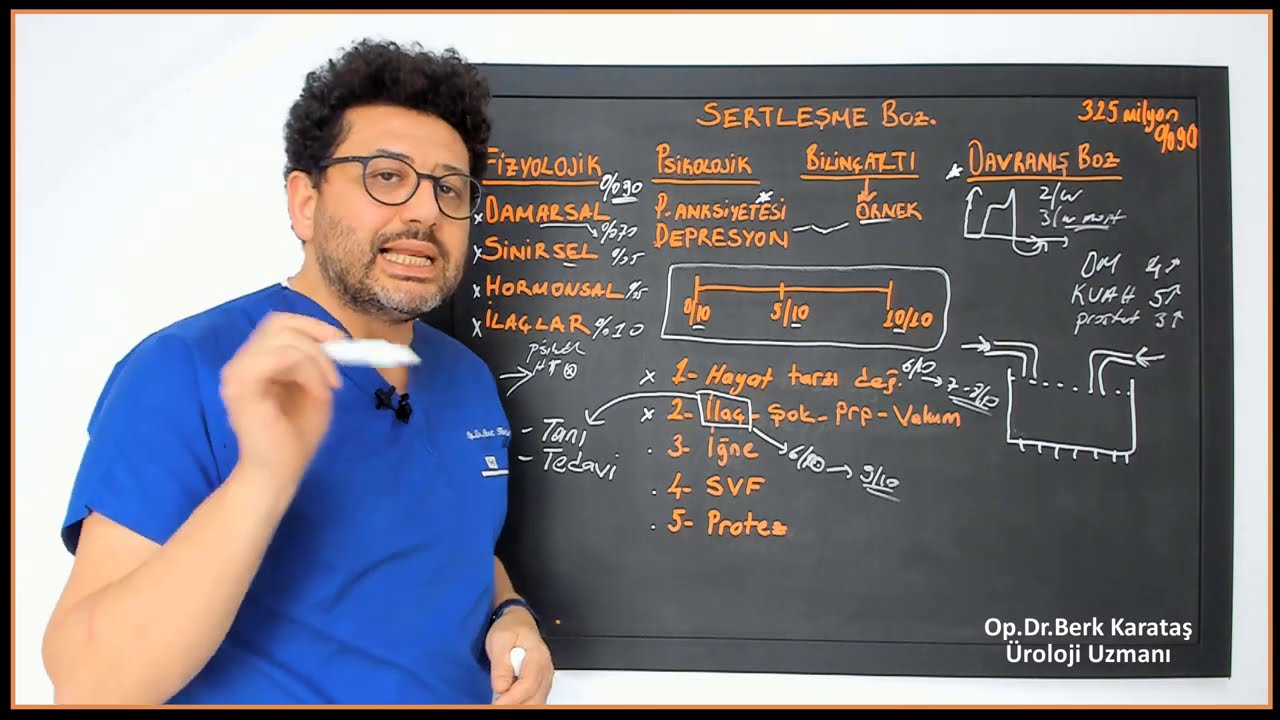 SERTLEŞME BOZ.
325 milyon
%90
FİZYOLOJİK
%90
DAMARSAL
%70
SİNİRSEL %5
HORMONSAL %5
İLAÇLAR %10
HT
- Tanı
- Tedavi
PSİKOLOJİK
P. ANKSİYETESİ
DEPRESYON
BİLİNÇALTI
ÖRNEK
DAVRANIŞ BOZ
2/w
3/w
DM 4↑
KVAH 5↑
prostat 3↑
0/10 5/10 10/10
1- Hayat tarzı değ. 6/10 → 7-8/10
2- İlaç - Şok - Prp - Vakum
3- İğne 6/10 → 9/10
4- SVF
5- Protez
Op.Dr.Berk Karataş
Üroloji Uzmanı